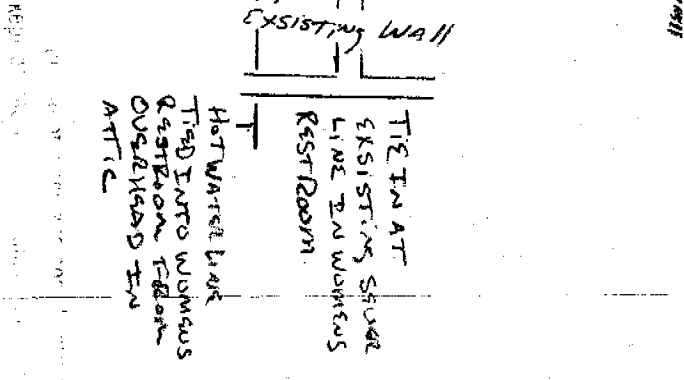 EXSISTING WALL
TIE IN AT
EXSISTING SEWER
LINE IN WOMENS
RESTROOM.
HOT WATER LINE
TIED INTO WOMENS
RESTROOM FROM
OVERHEAD IN
ATTIC